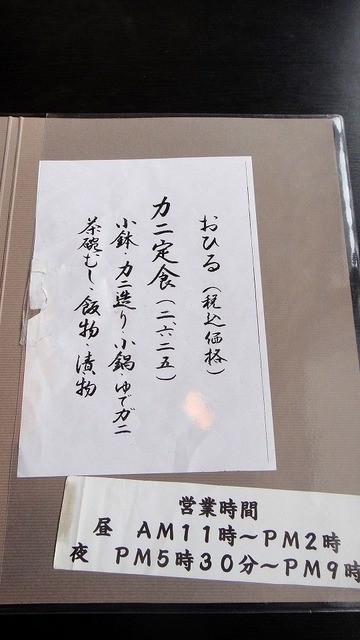 おひる（税込価格）
カニ定食（二六二五）
小鉢・カニ造り・小鍋・ゆでガニ
茶碗むし・飯物・漬物
営業時間
昼 AM11時～PM2時
夜 PM5時30分～PM9時